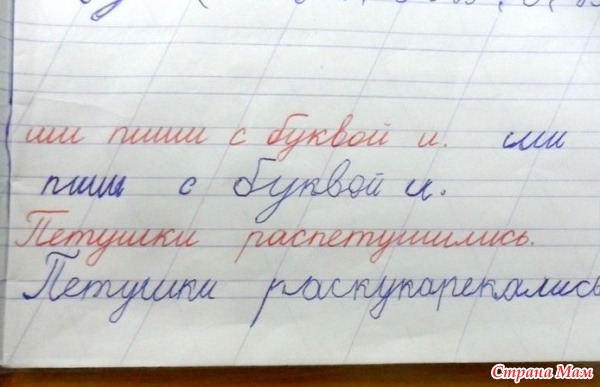 ши пиши с буквой и. ши
пиши с буквой и.
Петушки распетушились.
Петушки раскукарекались
Страна Мам